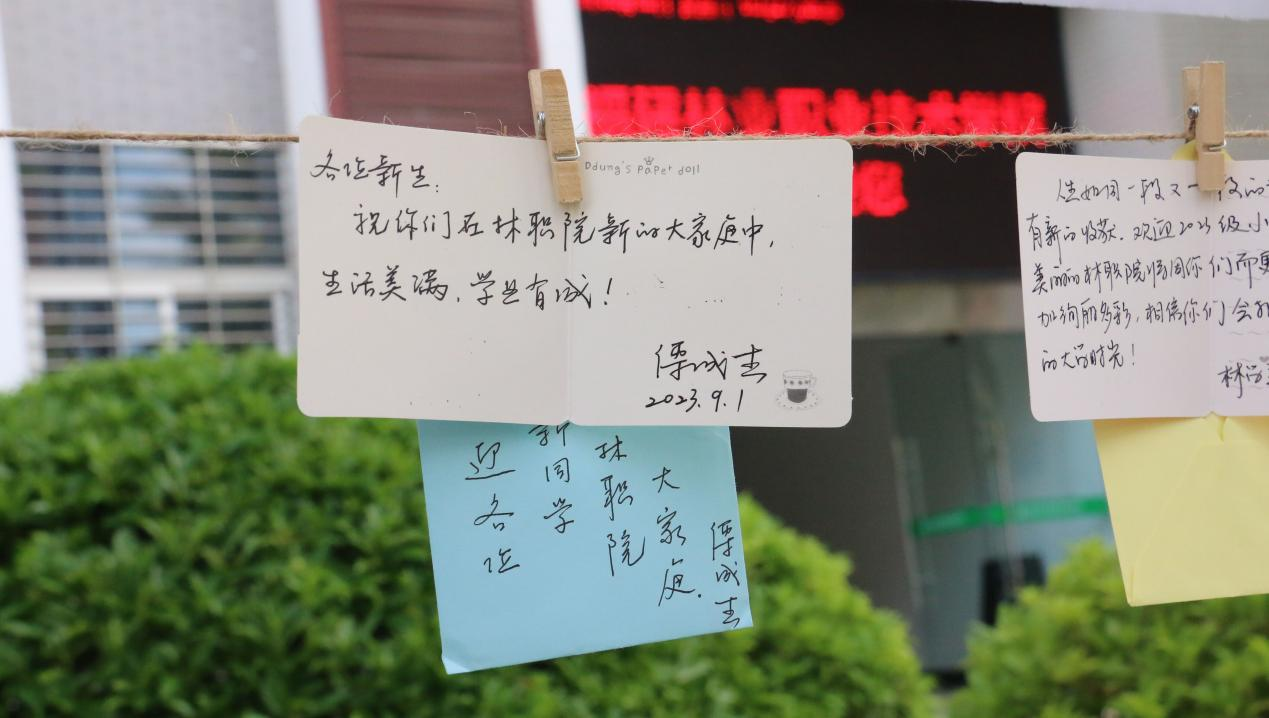 各位新生：
Ddung's Paper doll
祝你们在林职院新的大家庭中，
生活美满，学业有成！
2023.9.1
迎各位
新同学
林职院
大家庭.
人生如同一段又一段的
有新的收获.欢迎2023级小
美丽的林职院将因你们而更
加绚丽多彩,相信你们会
的大学时光！